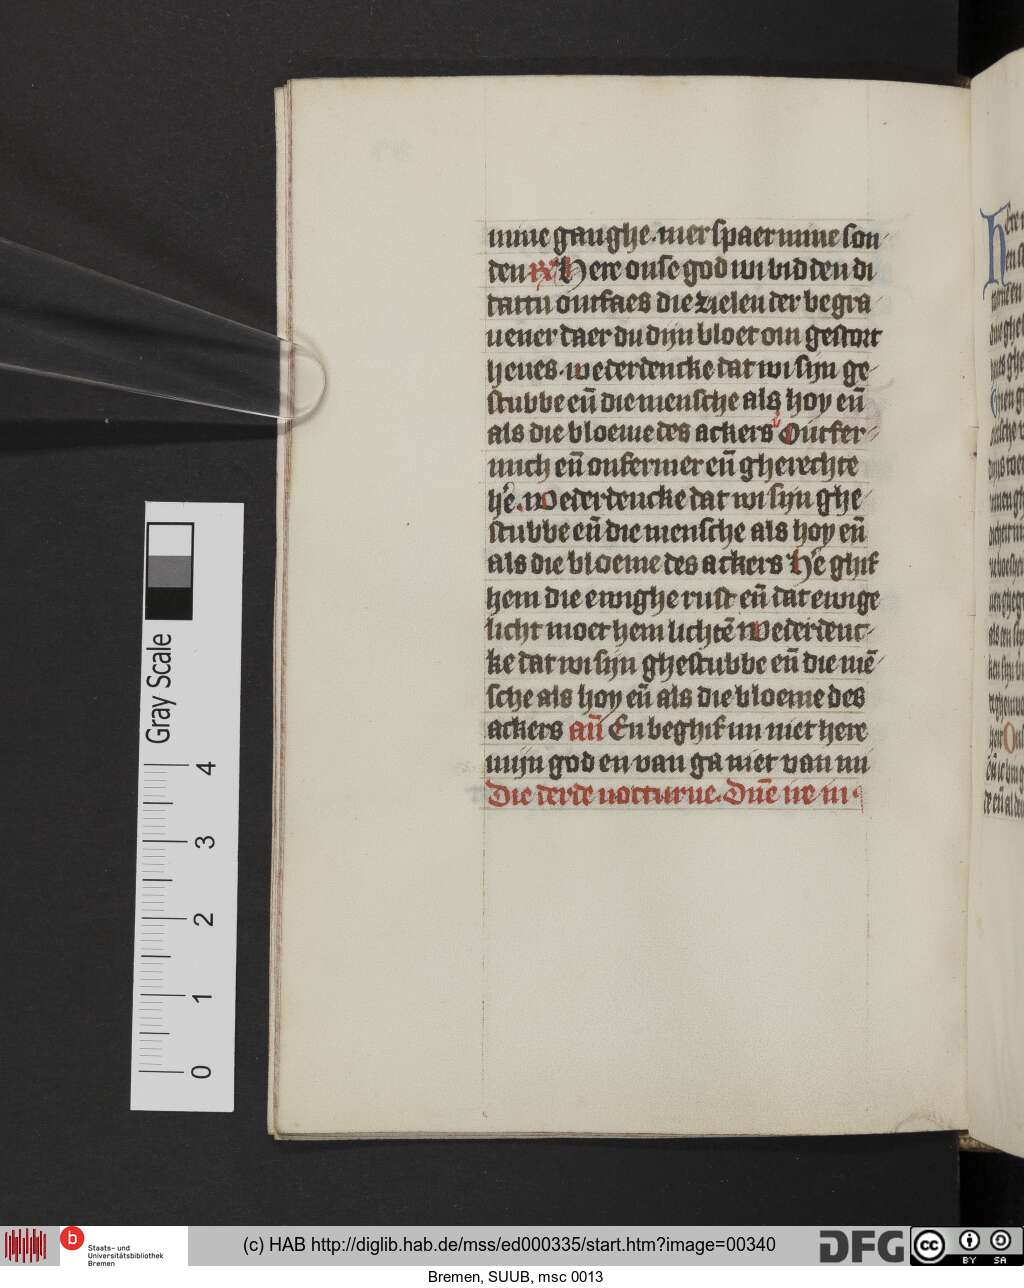 mine ganghe. mer spaer mine son
den R Here onse god wi bidden di
dattu ontfaes die zielen der begra
uener daer du dyn bloet om gestort
heues. wederdencke dat wi sijn ge
stubbe en̄ die mensche als hoy en̄
als die bloeme des ackers v Ontfer
mich en̄ onfermer en̄ gherechte
he. Wederdencke dat wi sijn ghe
stubbe en̄ die mensche als hoy en̄
als die bloeme des ackers He ghif
hem die ewighe rust en̄ dat ewige
licht moet hem lichtē Wederdenc
ke dat wi sijn ghestubbe en̄ die mē
sche als hoy en̄ als die bloeme des
ackers an̄ En beghif mi niet here
mijn god en van ga niet van mi
Die derde notturne. Dn̄e ne in
Gray Scale
4
3
2
1
0
b
Staats- und
Universitätsbibliothek
Bremen
(c) HAB http://diglib.hab.de/mss/ed000335/start.htm?image=00340
DFG
cc
BY SA
Bremen, SUUB, msc 0013